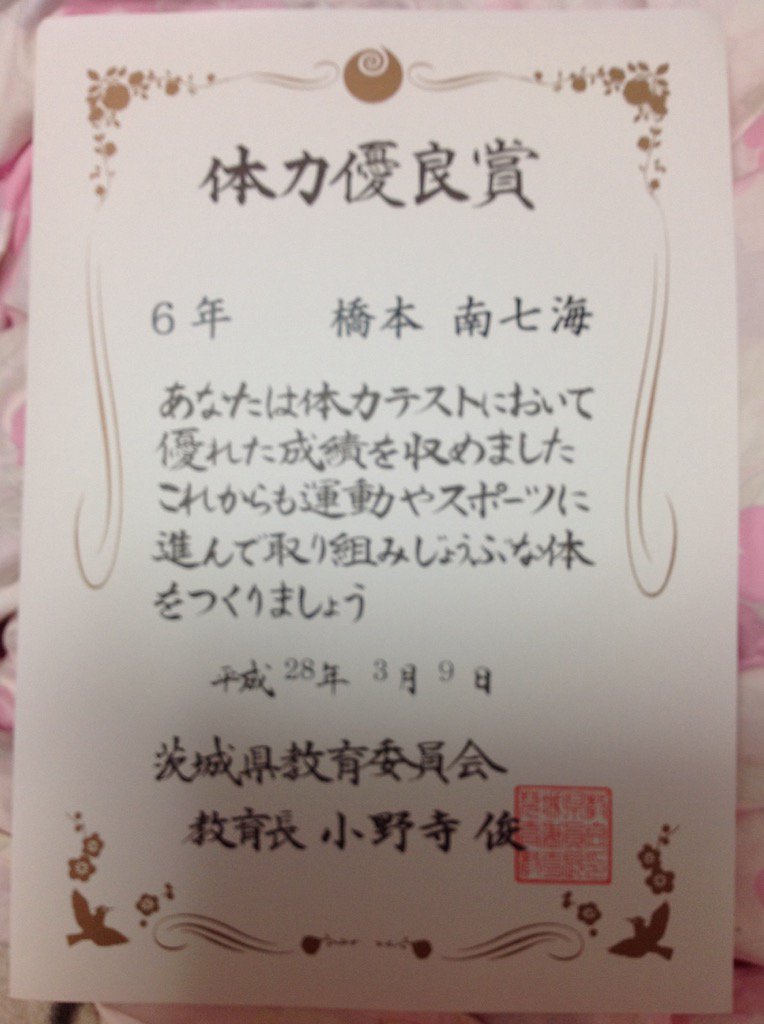 体力優良賞
6年 橋本 南七海
あなたは体力テストにおいて
優れた成績を収めました
これからも運動やスポーツに
進んで取り組みじょうぶな体
をつくりましょう
平成28年 3月9日
茨城県教育委員会
教育長 小野寺 俊